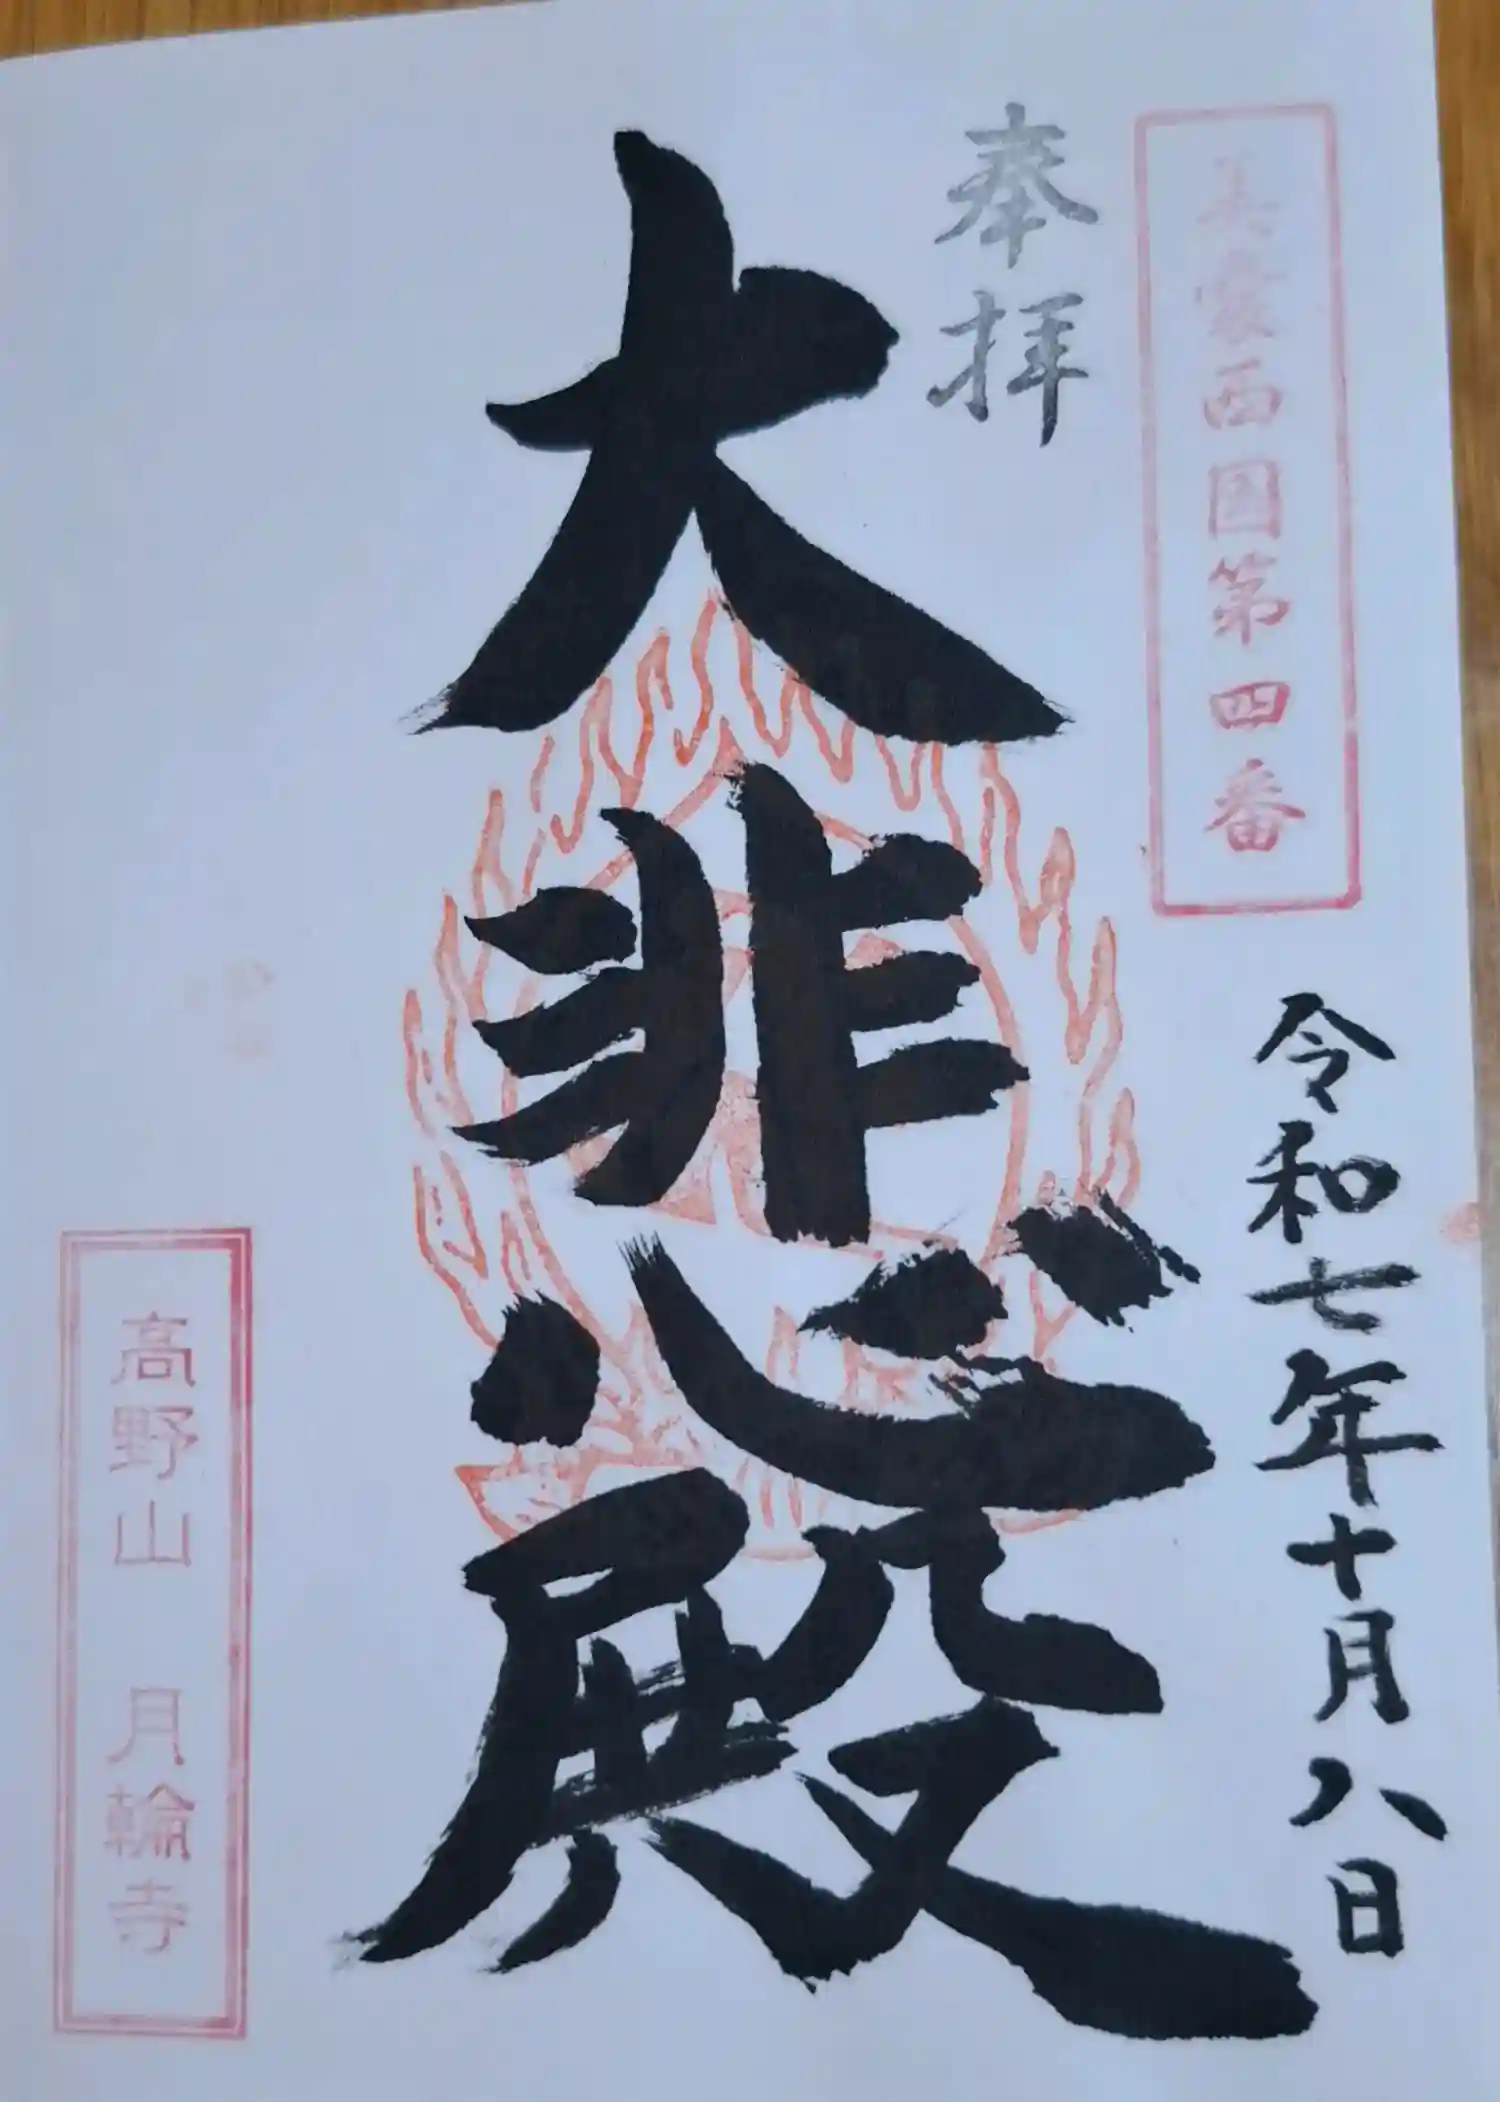 美濃西國第四番
奉拝
令和七年十月八日
大悲殿
高野山 月輪寺